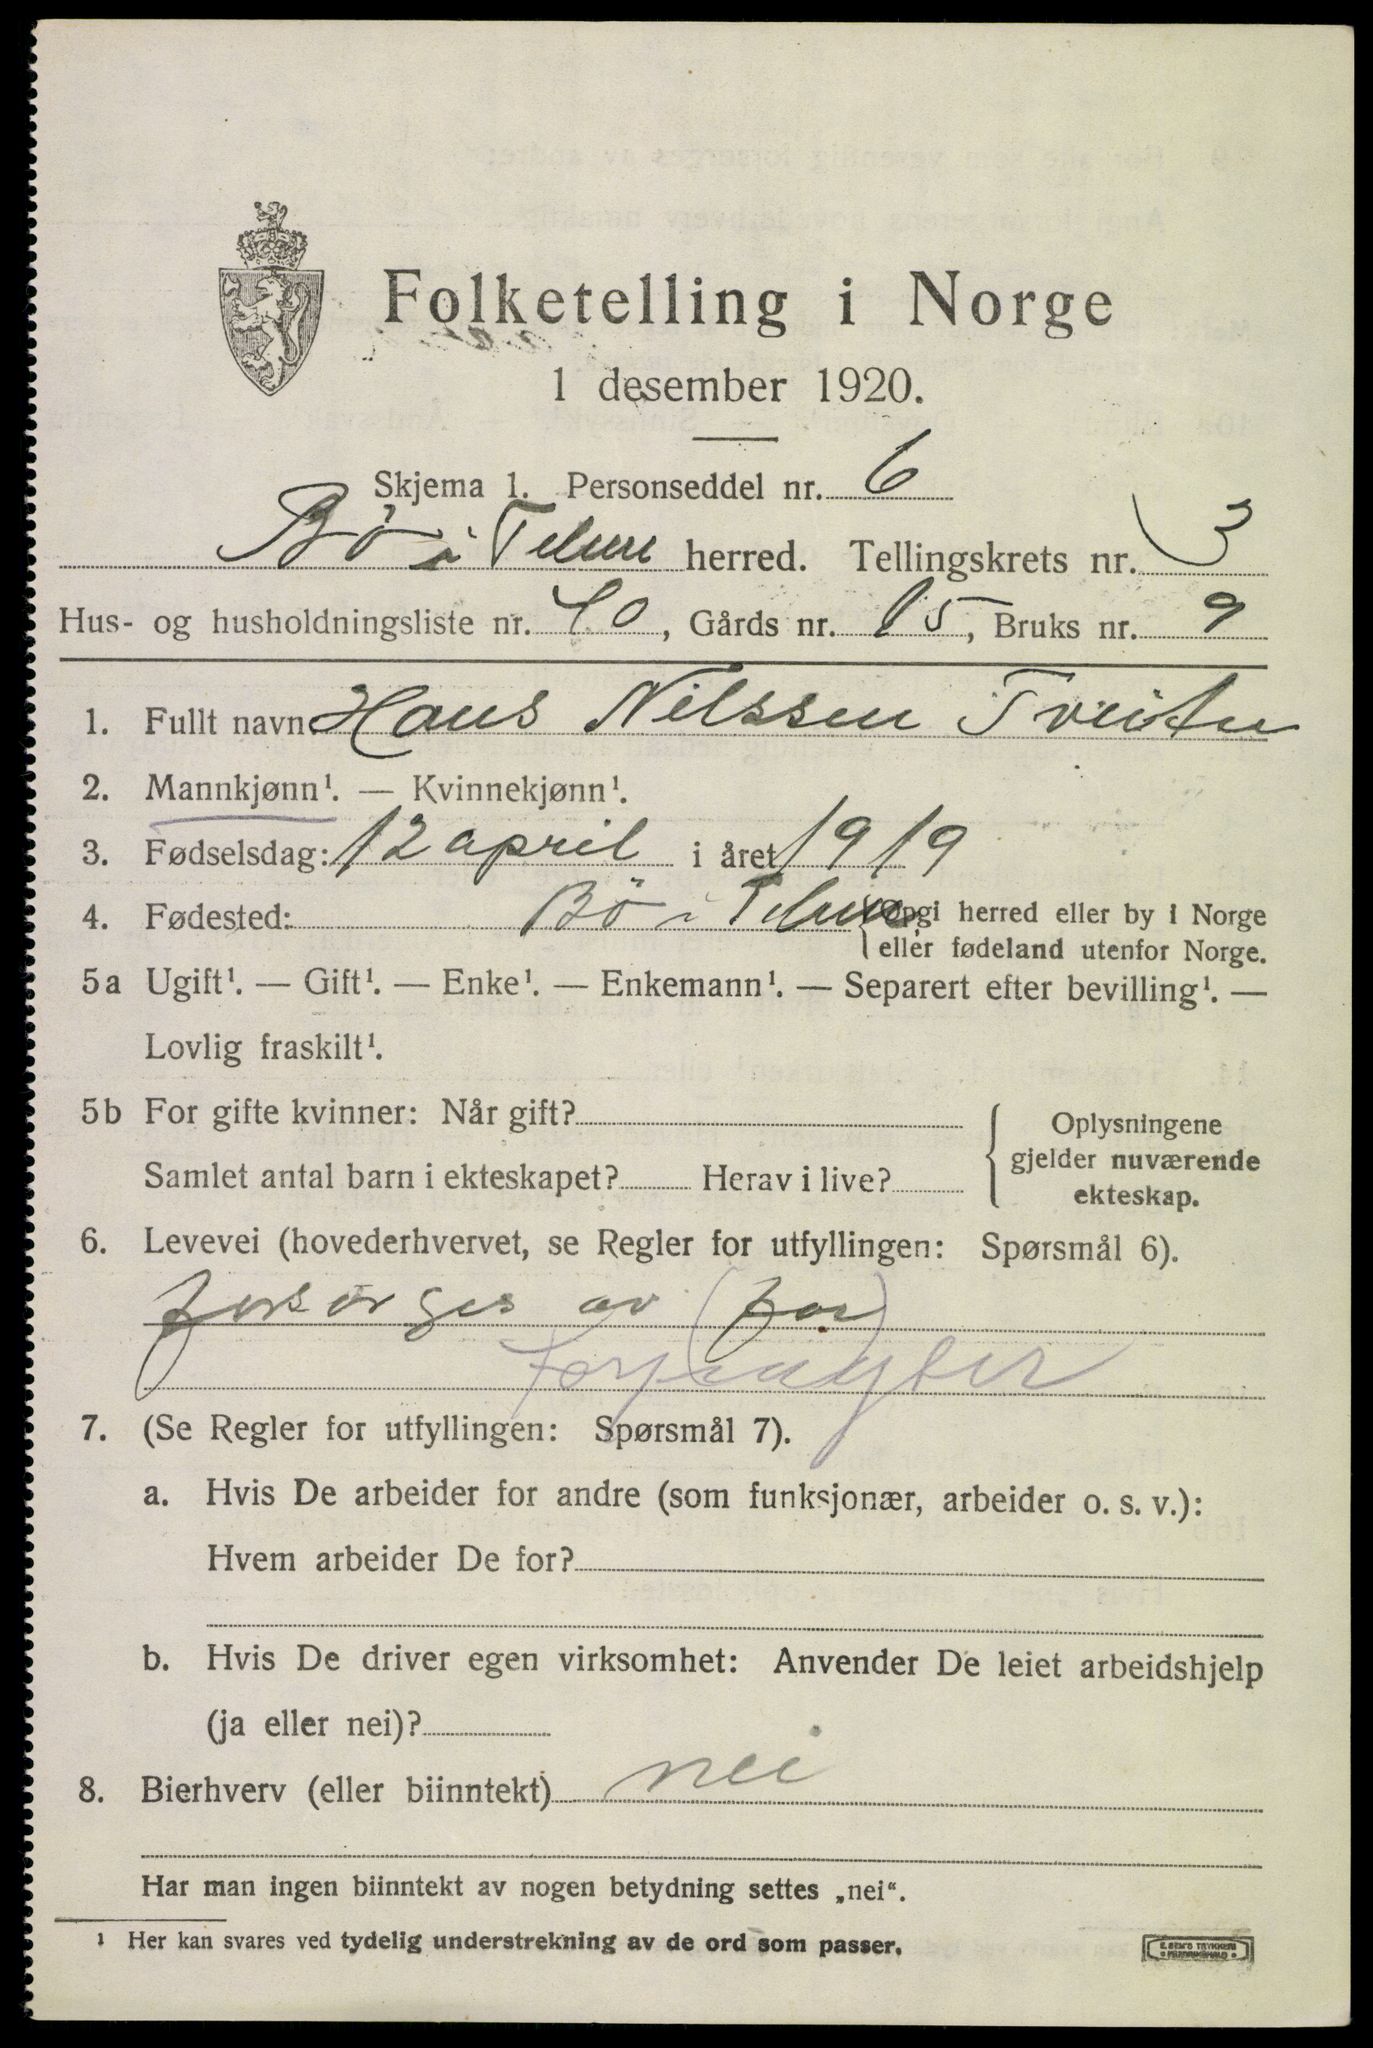 Folketelling i Norge
1 desember 1920.
Skjema 1. Personseddel nr. 6
Bø i Telem herred. Tellingskrets nr. 3
Hus- og husholdningsliste nr. 40, Gårds nr. 15, Bruks nr. 9
1. Fullt navn Hans Nilssen Tveiten
2. Mannkjønn¹. — Kvinnekjønn¹.
3. Fødselsdag: 12 april i året 1919
4. Fødested: Bø i Telem {Opgi herred eller by i Norge
eller fødeland utenfor Norge.
5a Ugift¹. — Gift¹. — Enke¹. — Enkemann¹. — Separert efter bevilling¹. —
Lovlig fraskilt¹.
5b For gifte kvinner: Når gift?
Samlet antal barn i ekteskapet? Herav i live?
Oplysningene
gjelder nuværende
ekteskap.
6. Levevei (hovederhvervet, se Regler for utfyllingen: Spørsmål 6).
forsørges av (far)
Forpagter
7. (Se Regler for utfyllingen: Spørsmål 7).
a. Hvis De arbeider for andre (som funksjonær, arbeider o. s. v.):
Hvem arbeider De for?
b. Hvis De driver egen virksomhet: Anvender De leiet arbeidshjelp
(ja eller nei)?
8. Bierhverv (eller biinntekt) nei
Har man ingen biinntekt av nogen betydning settes „nei“.
¹ Her kan svares ved tydelig understrekning av de ord som passer.
E. SEM'S TRYKKERI
FREDRIKSHALD